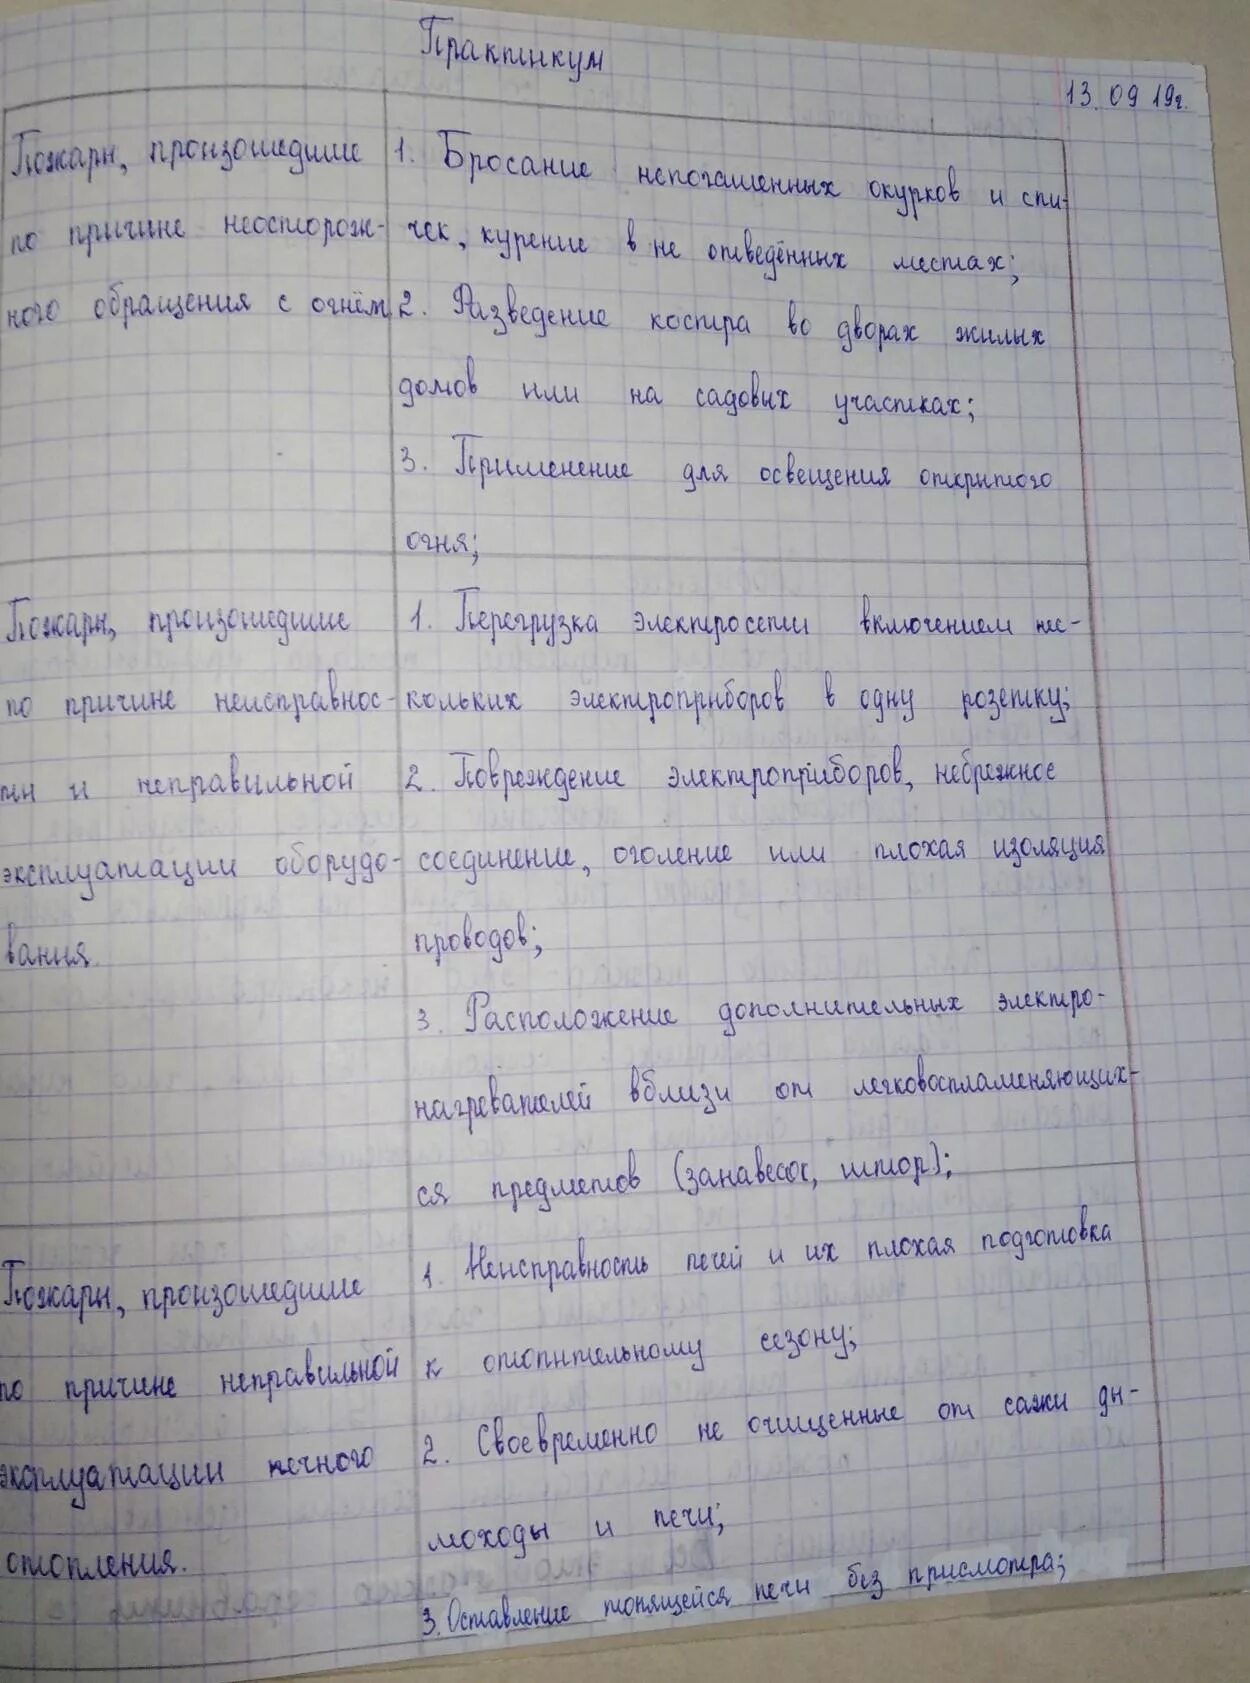 Практикум
13.09 19г.
Пожары, произошедшие
по причине неосторож-
ного обращения с огнём
1. Бросание непогашенных окурков и спи-
чек, курение в не отведённых местах;
2. Разведение костра во дворах жилых
домов или на садовых участках;
3. Применение для освещения открытого
огня;
Пожары, произошедшие
по причине неисправнос-
ти и неправильной
эксплуатации оборудо-
вания.
1. Перегрузка электросети включением нес-
кольких электроприборов в одну розетку;
2. Повреждение электроприборов, небрежное
соединение, оголение или плохая изоляция
проводов;
3. Расположение дополнительных электро-
нагревателей вблизи от легковоспламеняющих-
ся предметов (занавесок, штор);
Пожары, произошедшие
по причине неправильной
эксплуатации печного
отопления.
1. Неисправность печей и их плохая подготовка
к отопительному сезону;
2. Своевременно не очищенные от сажи ды-
моходы и печи;
3. Оставление топящейся печи без присмотра;